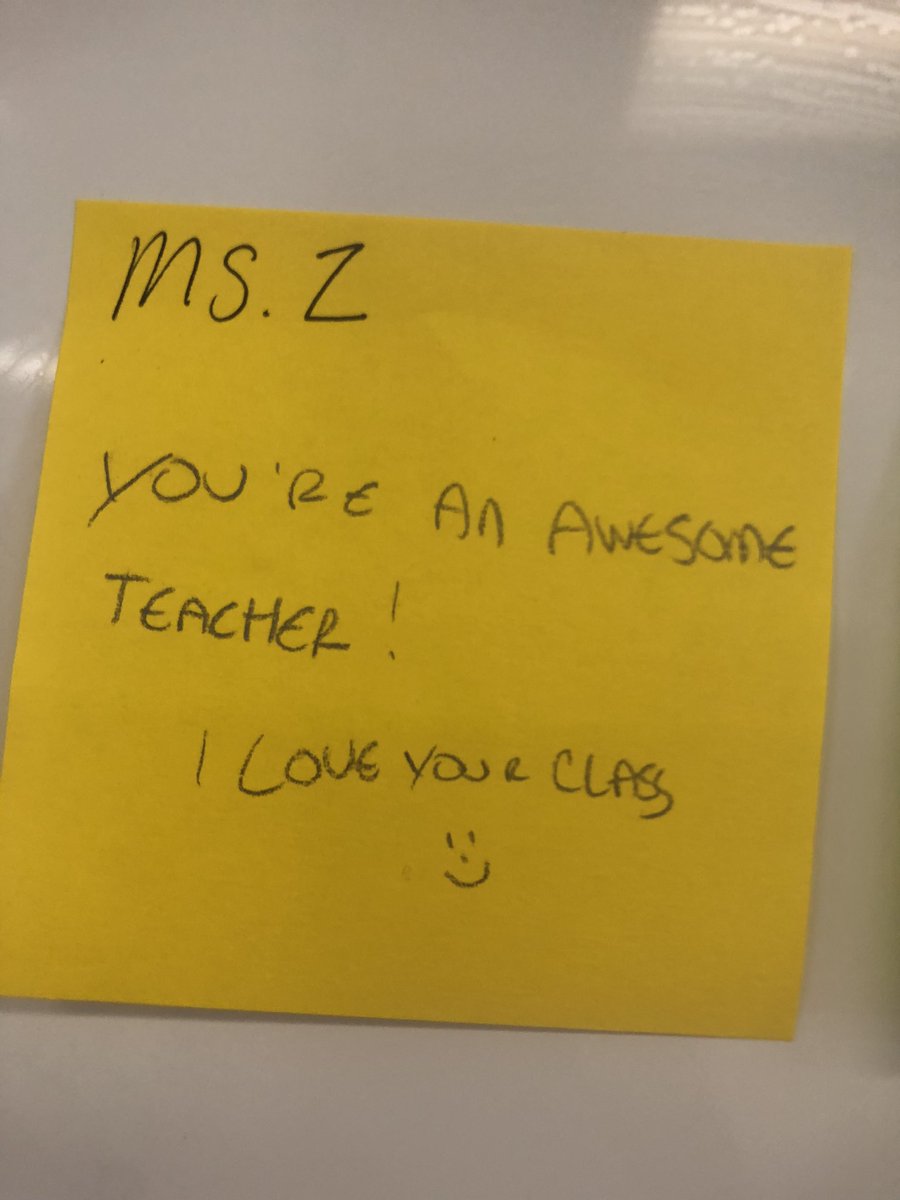 MS. Z
YOU'RE AN AWESOME
TEACHER!
I LOVE YOUR CLASS